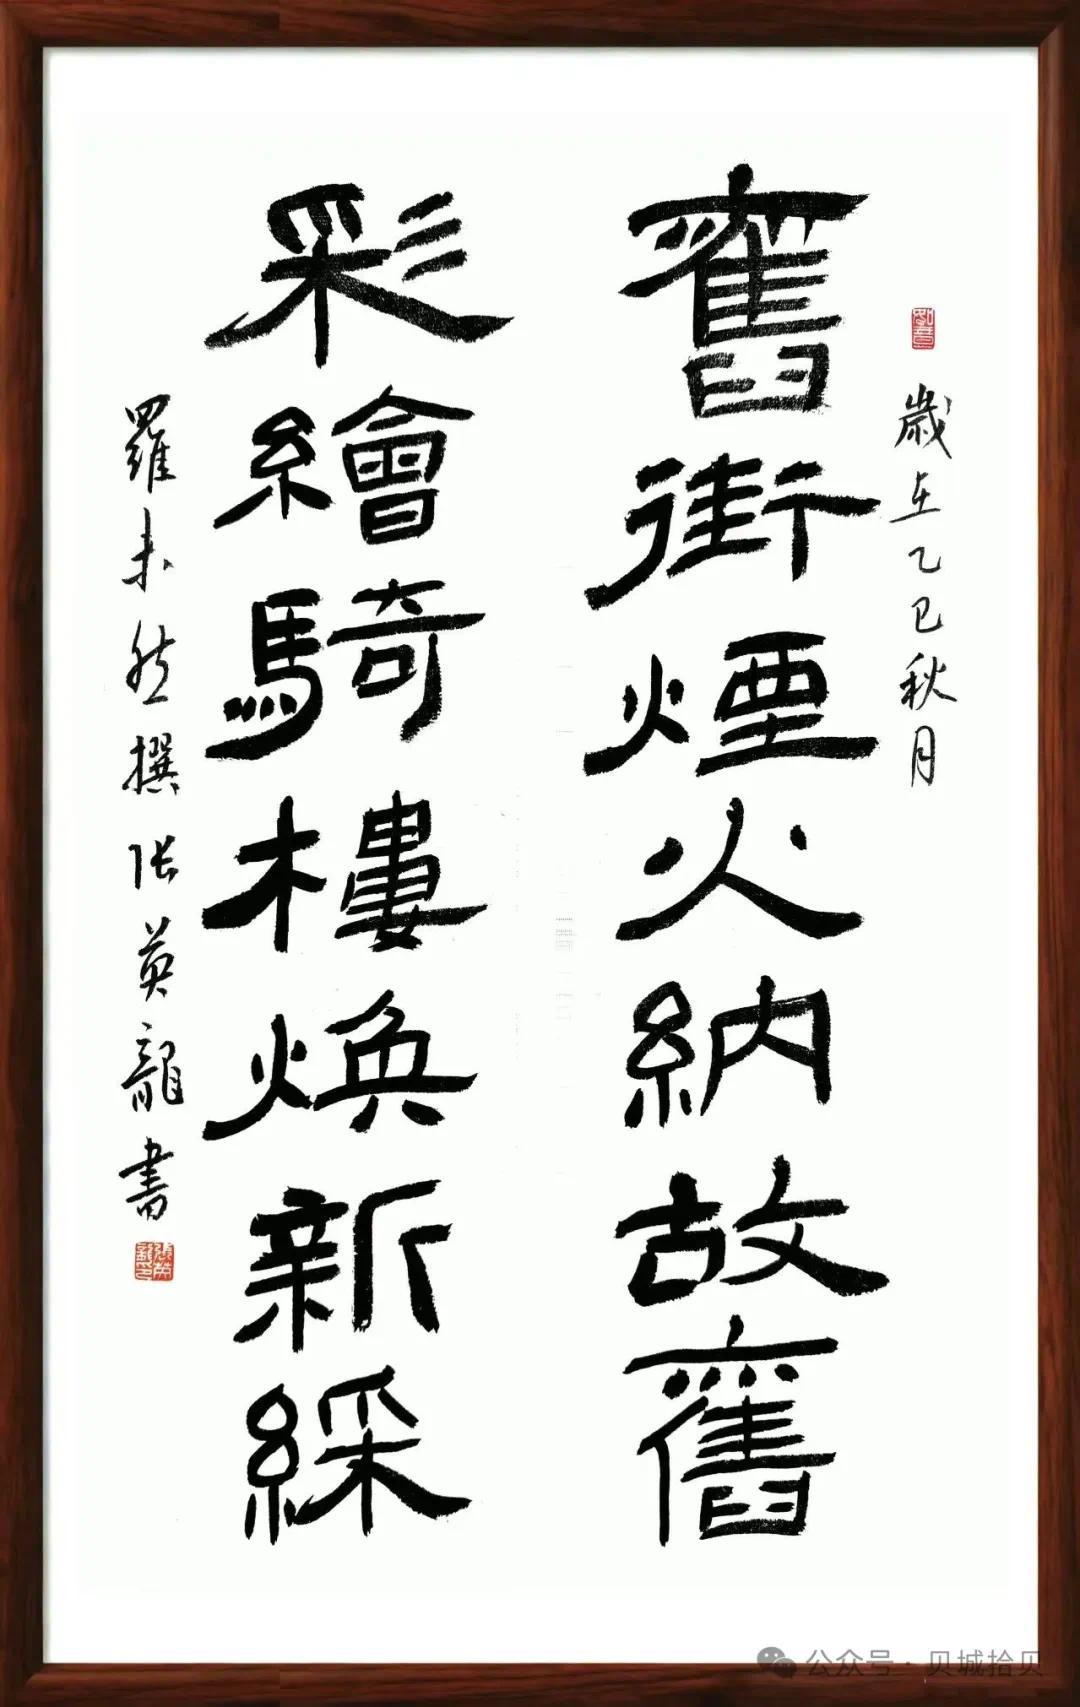 歲在乙巳秋月
舊街煙火納故舊
彩繪騎樓煥新綵
羅未然撰張英龍書
公众号·贝城拾贝